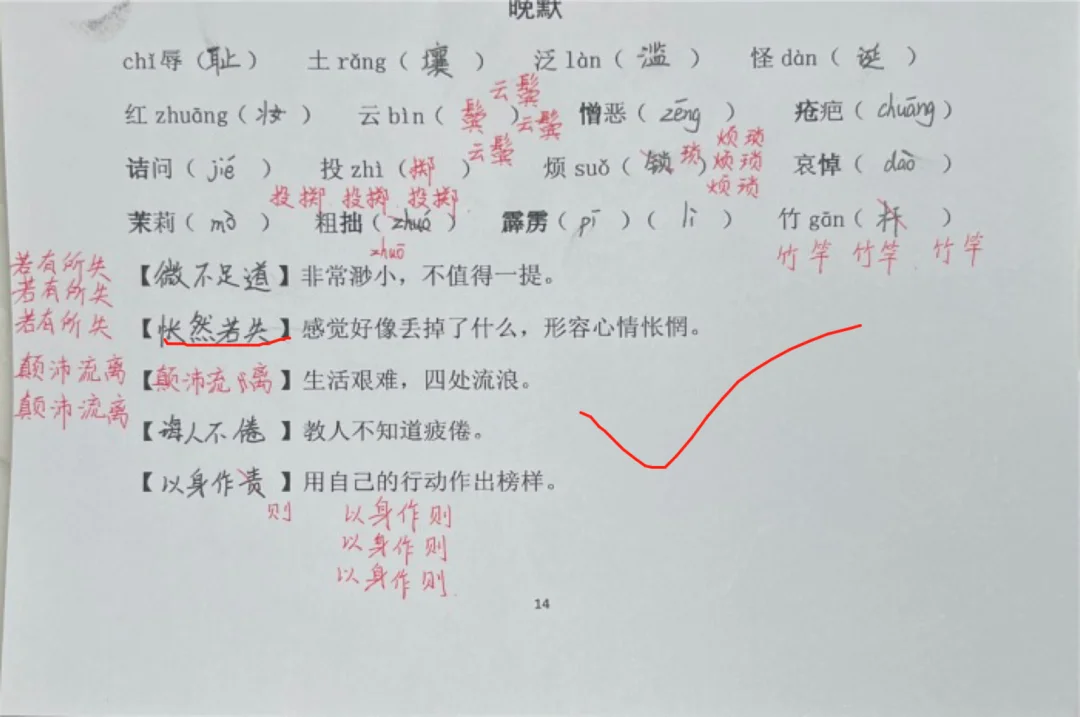 晚默
chǐ辱（耻） 土rǎng（壤） 泛làn（滥） 怪dàn（诞）
云鬓
红zhuāng（妆） 云bìn（鬓） 憎恶（zēng） 疮疤（chuāng）
云鬓
云鬓
烦琐
诘问（jié） 投zhì（掷） 烦suǒ（锁）琐 烦琐 哀悼（dào）
烦琐
投掷 投掷 投掷
茉莉（mò） 粗拙（zhuó） 霹雳（pī）（lì） 竹gān（杆）
zhuō 竹竿 竹竿 竹竿
若有所失
【微不足道】非常渺小，不值得一提。
若有所失
若有所失 【怅然若失】感觉好像丢掉了什么，形容心情怅惘。
颠沛流离 【颠沛流离】生活艰难，四处流浪。
颠沛流离
【诲人不倦】教人不知道疲倦。
【以身作责】用自己的行动作出榜样。
则 以身作则
以身作则
以身作则
14